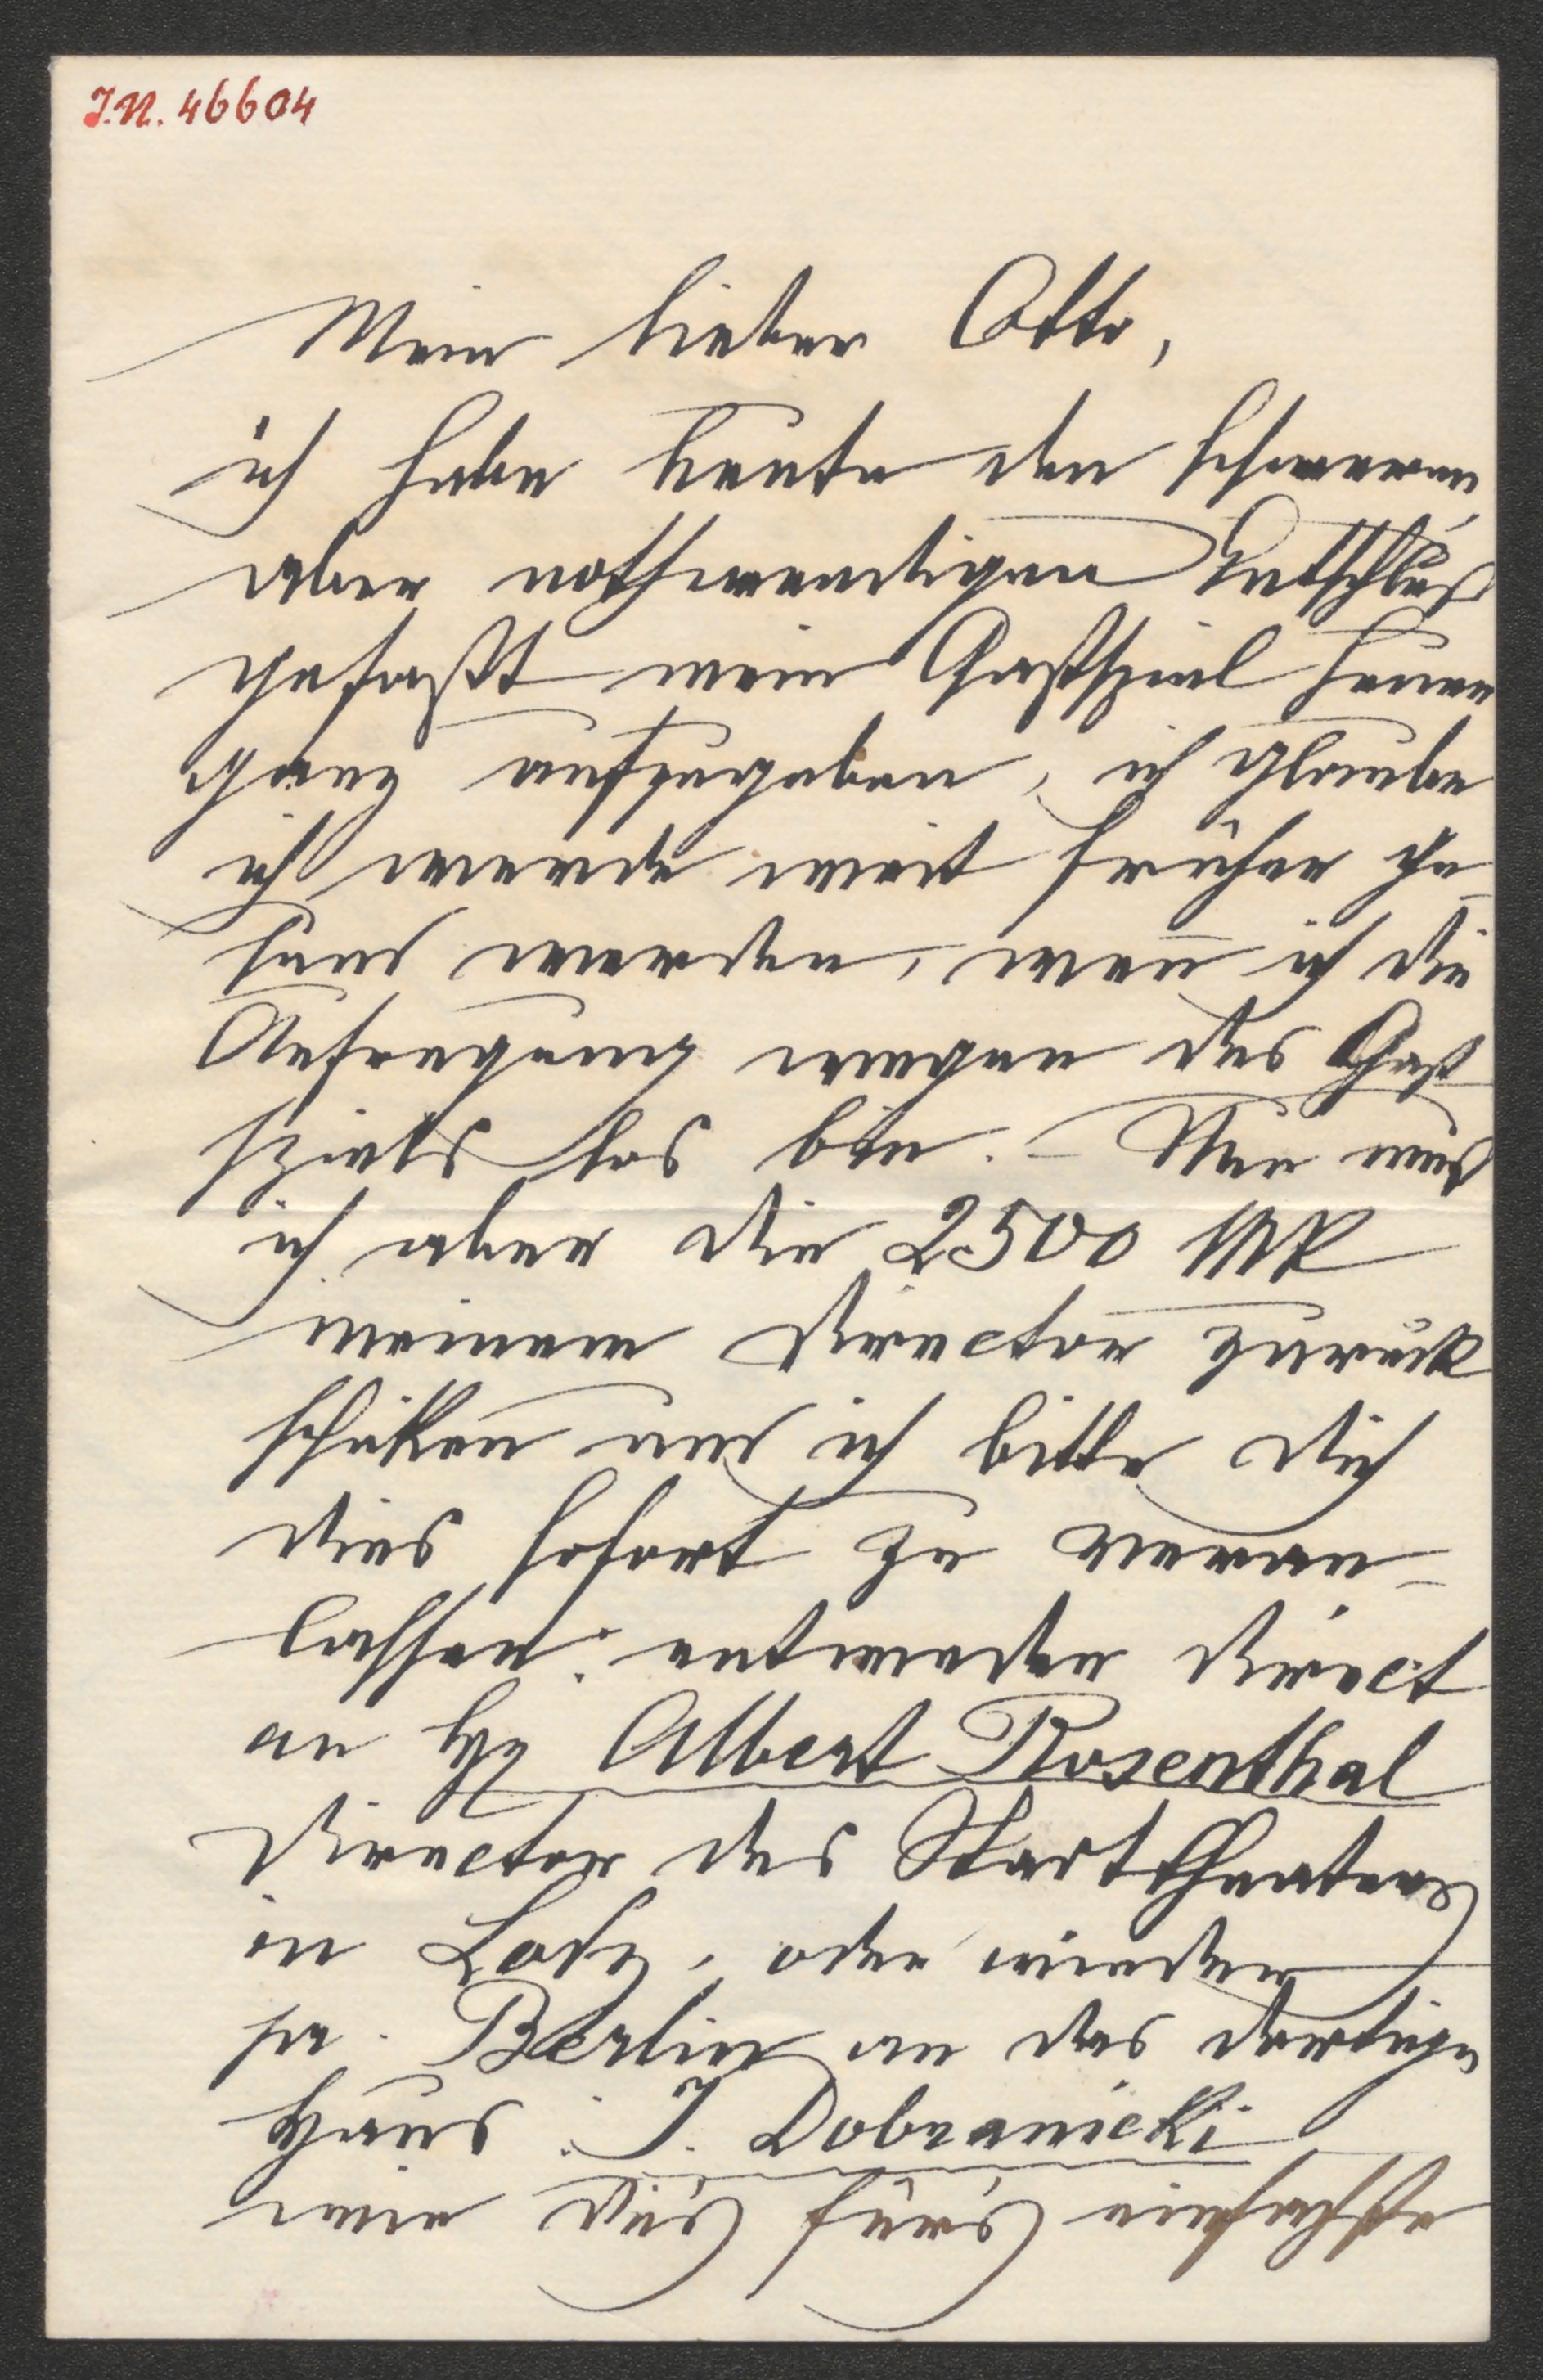 J.N. 46604
Mein lieber Otto,
ich habe heute den schweren,
aber nothwendigen Entschluß
gefaßt mein Gastspiel heuer
ganz aufzugeben, ich glaube
ich werde weit früher ge-
sund werden, wen̄ ich die
Aufregung wegen des Gast
spiels los bin. – Nun muß
ich aber die 2500 MK
meinem Director zurück
schiken und ich bitte dich
dies sofort zu veran-
lassen: entweder direct
an H Albert Rosenthal
Director des Stadttheaters
in Lodz, oder wieder
pr. Berlin an das dortige
Haus: J. Dobranicki
wie Du's für's einfachste